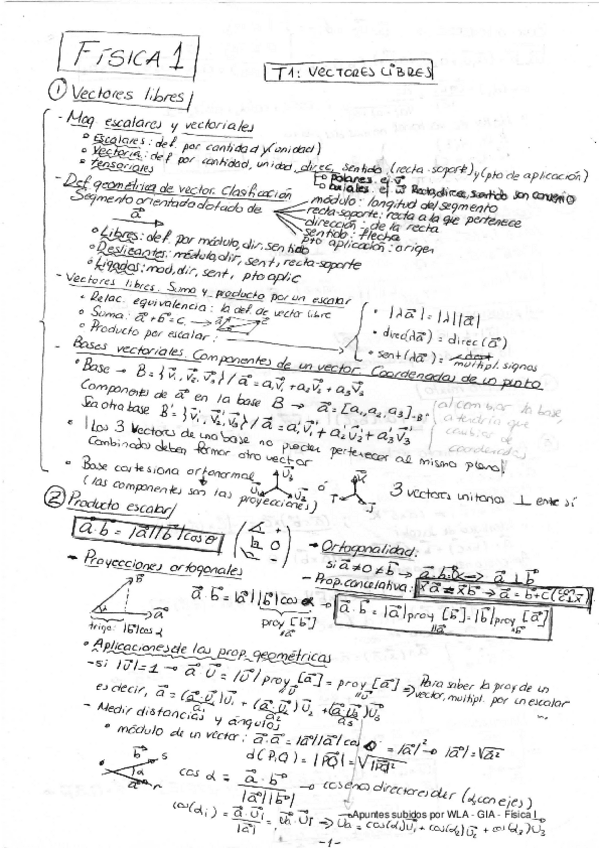 FÍSICA 1
T1: VECTORES LIBRES
① Vectores libres
- Mag escalares y vectoriales
• Escalares: def. por cantidad y (unidad)
• Vectorial: def por cantidad, unidad, direc, sentido, (recta-soporte) y (pto de aplicación)
• tensoriales
polares ej v⃗
axiales ej w⃗ Recta, direc, sentido son convenio
- Def geométrica de vector. Clasificación
Segmento orientado dotado de
a⃗
módulo: longitud del segmento
recta-soporte: recta a la que pertenece
dirección: de la recta
sentido: flecha
pto aplicación: origen
• Libres: def. por módulo, dir, sentido
• Deslizantes: módulo, dir, sent, recta-soporte
• Ligados: mod, dir, sent, pto aplic
- Vectores libres. Suma y producto por un escalar
• Relac. equivalencia: la def. de vector libre
• Suma: a⃗+b⃗=c⃗
• Producto por escalar:
• |λa⃗| = |λ||a⃗|
• direc(λa⃗) = direc(a⃗)
• sent(λa⃗) = multipl. signos
- Bases vectoriales. Componentes de un vector. Coordenadas de un punto
• Base → B = {v⃗₁, v⃗₂, v⃗₃} / a⃗ = a₁v⃗₁ + a₂v⃗₂ + a₃v⃗₃
Componentes de a⃗ en la base B → a⃗ = [a₁, a₂, a₃]B
Sea otra base B' = {v⃗₁', v⃗₂', v⃗₃'} / a⃗ = a₁'v⃗₁' + a₂'v⃗₂' + a₃'v⃗₃'
al cambiar la base, a tendría que cambiar de coordenadas
• ¡Los 3 vectores de una base no pueden pertenecer al mismo plano!
Combinados deben formar otro vector
• Base cartesiana ortonormal
(las componentes son las proyecciones)
ó
3 vectores unitarios ⊥ entre sí
② Producto escalar
a⃗·b⃗ = |a⃗||b⃗|cosθ
- Ortogonalidad:
si a⃗≠0≠b⃗ → a⃗·b⃗=0 → a⃗⊥b⃗
- Prop. cancelativa:
- Proyecciones ortogonales
b⃗
a⃗
trigo: |b⃗|cosα
a⃗·b⃗ = |a⃗||b⃗|cosα →
proy [b⃗]
a⃗·b⃗ = |a⃗|proy[b⃗] = |b⃗|proy[a⃗]
• Aplicaciones de las prop. geométricas
- si |u⃗|=1 → a⃗·u⃗ = |u⃗|proy[a⃗] = proy[a⃗] ⇒ Para saber la proy de un
vector, multipl. por un escalar
es decir, a⃗ = (a⃗·u⃗₁)u⃗₁ + (a⃗·u⃗₂)u⃗₂ + (a⃗·u⃗₃)u⃗₃
a₁ a₂ a₃
- Medir distancias y ángulos
• módulo de un vector: a⃗·a⃗ = |a⃗||a⃗|cos0 = |a⃗|² → |a⃗| = √a⃗²
d(P,Q) = |PQ⃗| = √PQ⃗²
b⃗ s
α
a⃗ r
cosα = a⃗·b⃗ / |a⃗||b⃗| → cosenos directores
cos(αᵢ) = a⃗·u⃗ᵢ / |a⃗| = u⃗a·u⃗ᵢ ⇒ u⃗a = cos(α₁)u⃗₁ + cos(α₂)u⃗₂ + cos(α₃)u⃗₃
Apuntes subidos por WLA - GIA - Física I
-1-